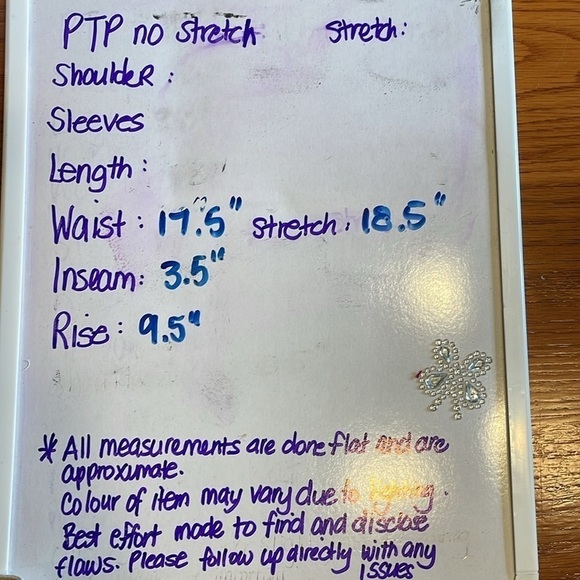 PTP no stretch stretch:
Shoulder :
Sleeves
Length :
Waist : 17.5" stretch : 18.5"
Inseam: 3.5"
Rise : 9.5"
* All measurements are done flat and are
approximate.
Colour of item may vary due to lighting.
Best effort made to find and disclose
flaws. Please follow up directly with any
issues